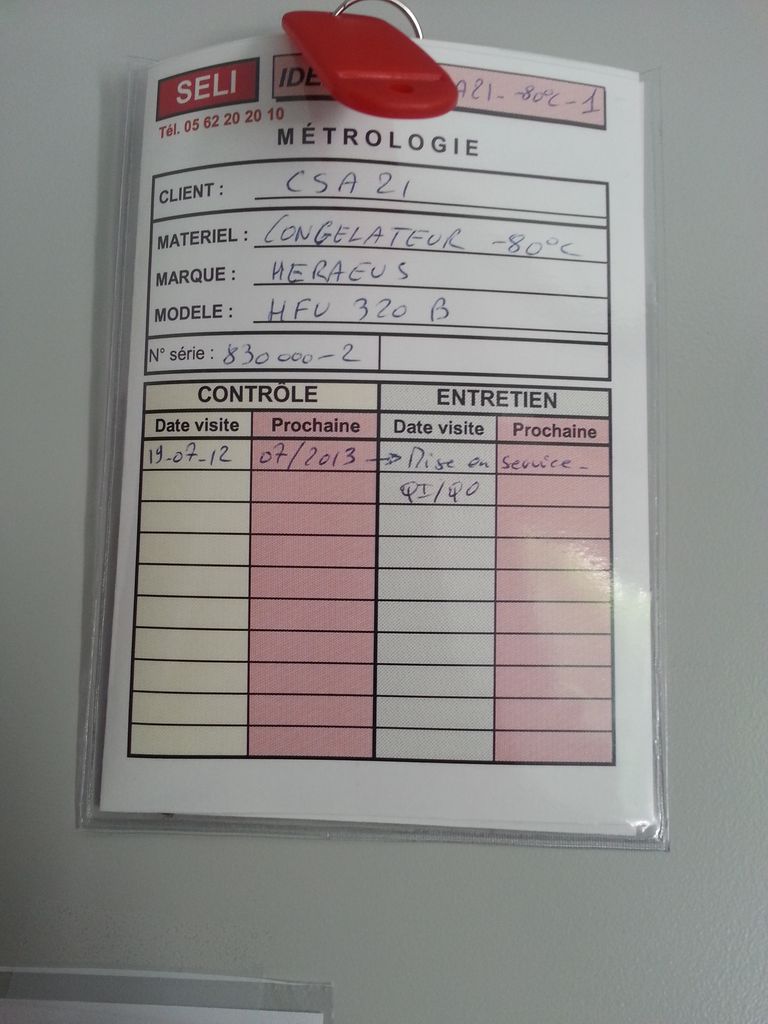 SELI
A21- -80°C - 1
Tél. 05 62 20 20 10
MÉTROLOGIE
CLIENT : CSA 21
MATERIEL : CONGELATEUR -80°C
MARQUE : HERAEUS
MODELE : HFU 320 B
N° série : 830 000-2
CONTRÔLE ENTRETIEN
Date visite Prochaine Date visite Prochaine
19-07-12 07/2013 → Mise en service -
QI/QO